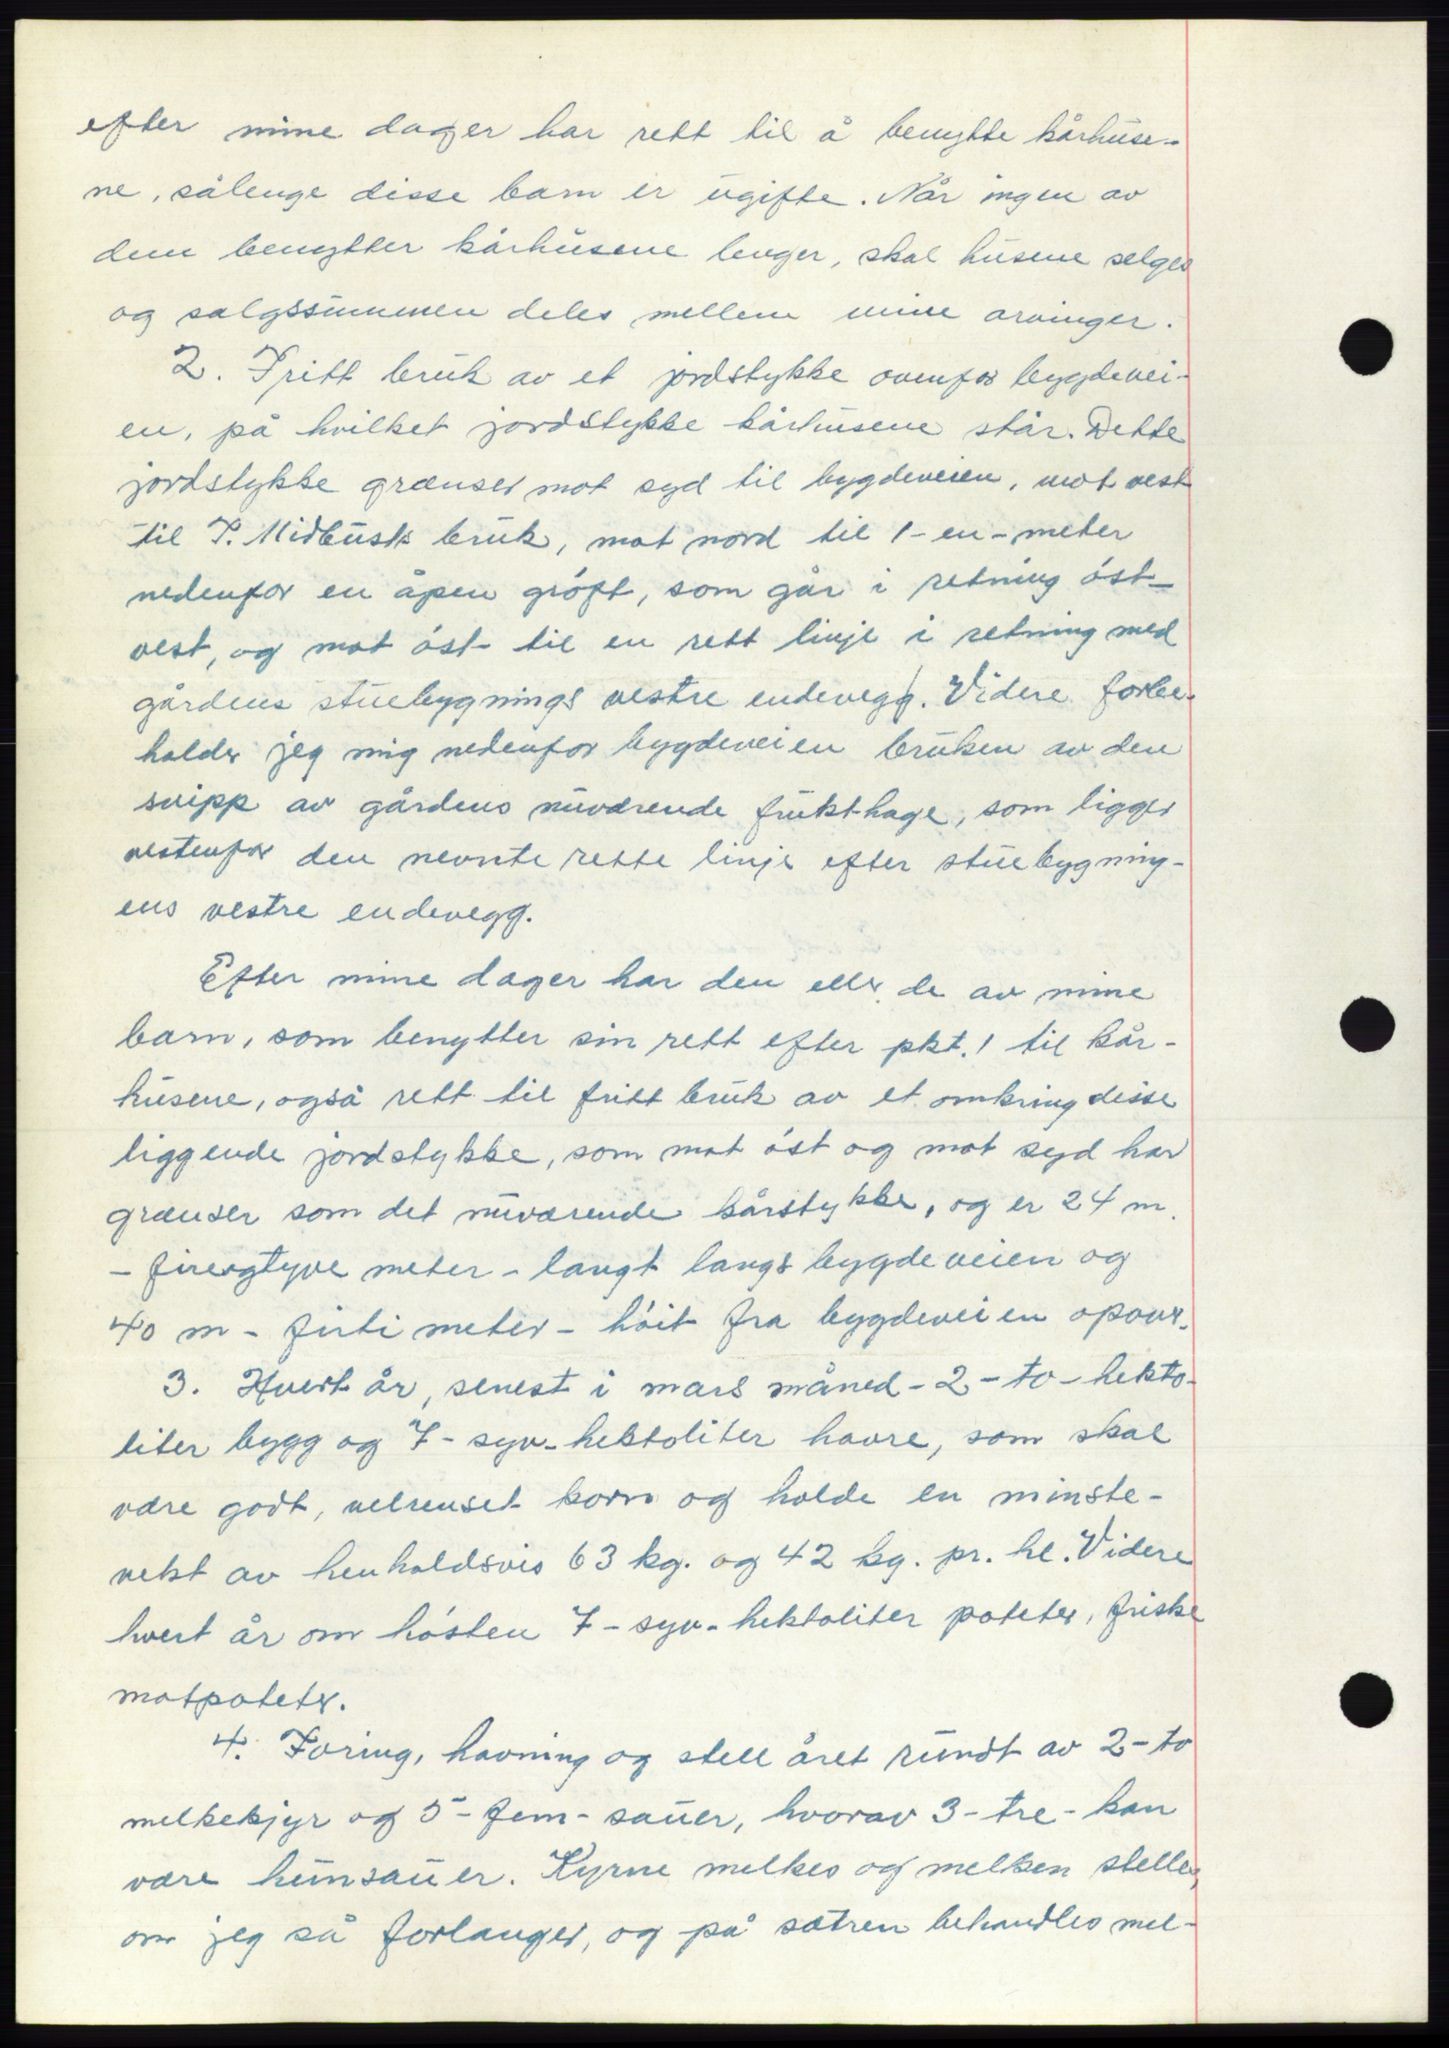 efter mine dager har rett til å benytte kårhuse-
ne, sålenge disse barn er ugifte. Når ingen av
dem benytter kårhusene lenger, skal husene selges
og salgssummen deles mellem mine arvinger.
2. Fritt bruk av et jordstykke ovenfor bygdevei-
en, på hvilket jordstykke kårhusene står. Dette
jordstykke grænser mot syd til bygdeveien, mot vest
til P. Midbusts bruk, mot nord til 1-en-meter
nedenfor en åpen gröft, som går i retning öst-
vest, og mot öst til en rett linje i retning med
gårdens stuebygnings vestre endevegg. Videre forbe-
holder jeg mig nedenfor bygdeveien bruken av den
snipp av gårdens nuværende frukthage, som ligger
vestenfor den nevnte rette linje efter stuebygning-
ens vestre endevegg.
Efter mine dager har den eller de av mine
barn, som benytter sin rett efter pkt. 1 til kår-
husene, også rett til fritt bruk av et omkring disse
liggende jordstykke, som mot öst og mot syd har
grænser som det nuværende kårstykke, og er 24 m.
- fireogtyve meter - langt langs bygdeveien og
40 m - firti meter - höit fra bygdeveien opover.
3. Hvert år, senest i mars måned - 2 - to - hekto-
liter bygg og 7 - syv - hektoliter havre, som skal
være godt, velrenset korn og holde en minste-
vekt av henholdsvis 63 kg. og 42 kg. pr. hl. Videre
hvert år om hösten 7 - syv - hektoliter poteter, friske
matpoteter.
4. Foring, havning og stell året rundt av 2 - to
melkekjyr og 5 - fem - sauer, hvorav 3 - tre - kan
være hunsauer. Kyrne melkes og melken stelles,
om jeg så forlanger, og på sætren behandles mel-